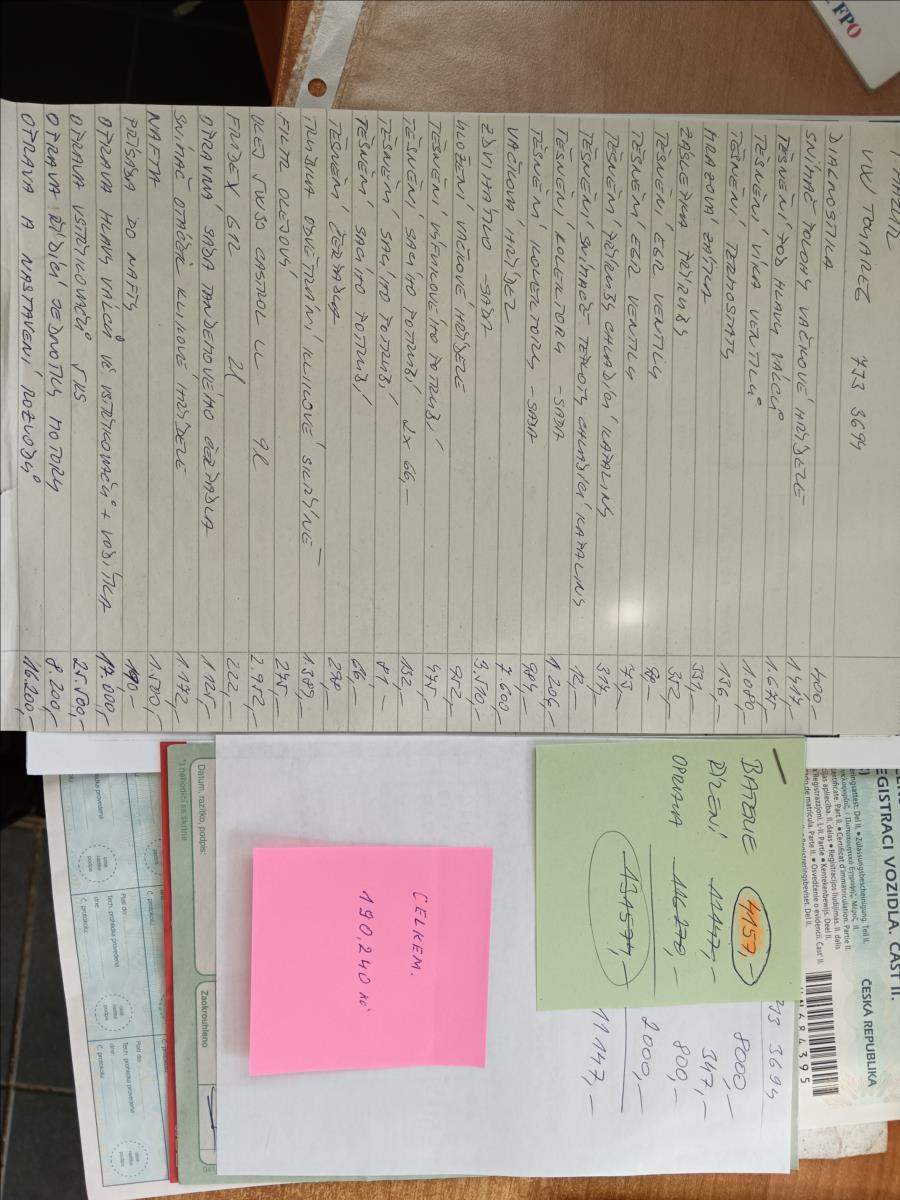 VW TOUAREG 7J3 3694
DIAGNOSTIKA 400,-
SNÍMAČ POLOHY VAČKOVÉ HŘÍDELE 1.417,-
TĚSNĚNÍ POD HLAVU VÁLCŮ 1.675,-
TĚSNĚNÍ VÍKA VENTILŮ 1.080,-
TĚSNĚNÍ TERMOSTATU 136,-
MRAZOVÁ ZÁTKA 331,-
ZÁSLEPKA PŘÍRUBY 352,-
TĚSNĚNÍ EGR VENTILU
TĚSNĚNÍ EGR VENTILU 73,-
TĚSNĚNÍ PŘÍRUBY CHLADÍCÍ KAPALINY 317,-
TĚSNĚNÍ SNÍMAČE TEPLOTY CHLADÍCÍ KAPALINY 12,-
TĚSNĚNÍ KOLEKTORU - SADA 1.204,-
TĚSNĚNÍ KOLEKTORU - SADA 984,-
VAČKOVÁ HŘÍDEL 7.600,-
ZDVIHÁTKO - SADA 9.510,-
ULOŽENÍ VAČKOVÉ HŘÍDELE 952,-
TĚSNĚNÍ VÝFUKOVÉHO POTRUBÍ 475,-
TĚSNĚNÍ SACÍHO POTRUBÍ 2x 66,- 132,-
TĚSNĚNÍ SACÍHO POTRUBÍ 81,-
TĚSNĚNÍ SACÍHO POTRUBÍ 66,-
TĚSNĚNÍ ČERPADLA 298,-
TRUBKA ODVĚTRÁNÍ KLIKOVÉ SKŘÍNĚ 1.389,-
FILTR OLEJOVÝ 275,-
OLEJ 5W30 CASTROL LL 9L 2.952,-
FRIDEX G12 2L 222,-
OPRAVNÁ SADA TANDEMOVÉHO ČERPADLA 1.125,-
SNÍMAČ OTÁČEK KLIKOVÉ HŘÍDELE 1.172,-
NAFTA 1.500,-
PŘÍSADA DO NAFTY 190,-
OPRAVA HLAVY VÁLCŮ VČ VSTŘIKOVAČŮ + VODÍTKA 17.000,-
OPRAVA VSTŘIKOVAČŮ 5KS 25.500,-
OPRAVA ŘÍDÍCÍ JEDNOTKY MOTORU 8.200,-
OPRAVA A NASTAVENÍ ROZVODŮ 16.200,-
FPO
BATERIE 4157,-
ŘÍZENÍ 11147,-
OPRAVA
8000,-
347,-
800,-
2000,-
11147,-
CELKEM.
190.240 Kč
REGISTRACI VOZIDLA. ČÁST II.
ČESKÁ REPUBLIKA
Datum, razítko, podpis:
Zaokrouhleno
*) nehodící se škrtněte